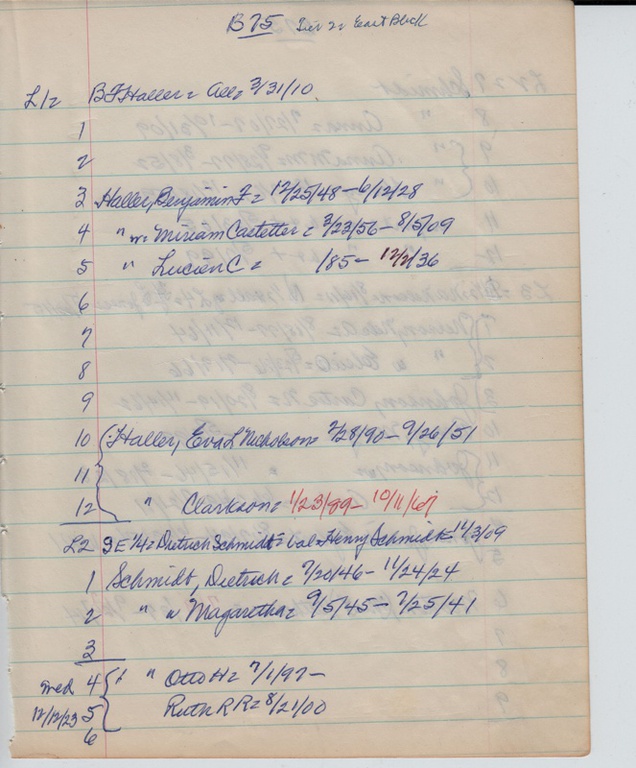 B 75 Tier 2 = East Block
L1= B F Haller = All = 3/31/10
1
2
3 Haller, Benjamin F = 12/25/48 - 6/12/28
4 " w= Miriam Castetter = 3/23/56 - 8/5/09
5 " Lucien C = /85 - 12/2/36
6
7
8
9
10 Haller, Eva L Nicholson = 7/28/90 - 9/26/51
11
12 " Clarkson = 1/23/89 - 10/11/67
L2 SE 1/4 = Dietrich Schmidt = bal = Henry Schmidt = 11/3/09
1 Schmidt, Dietrich = 7/20/46 - 11/24/24
2 " w Magaretha = 9/5/45 - 7/25/41
3
med 4 " Otto H = 7/1/97 -
12/12/23 5 Ruth R R = 8/21/00
6